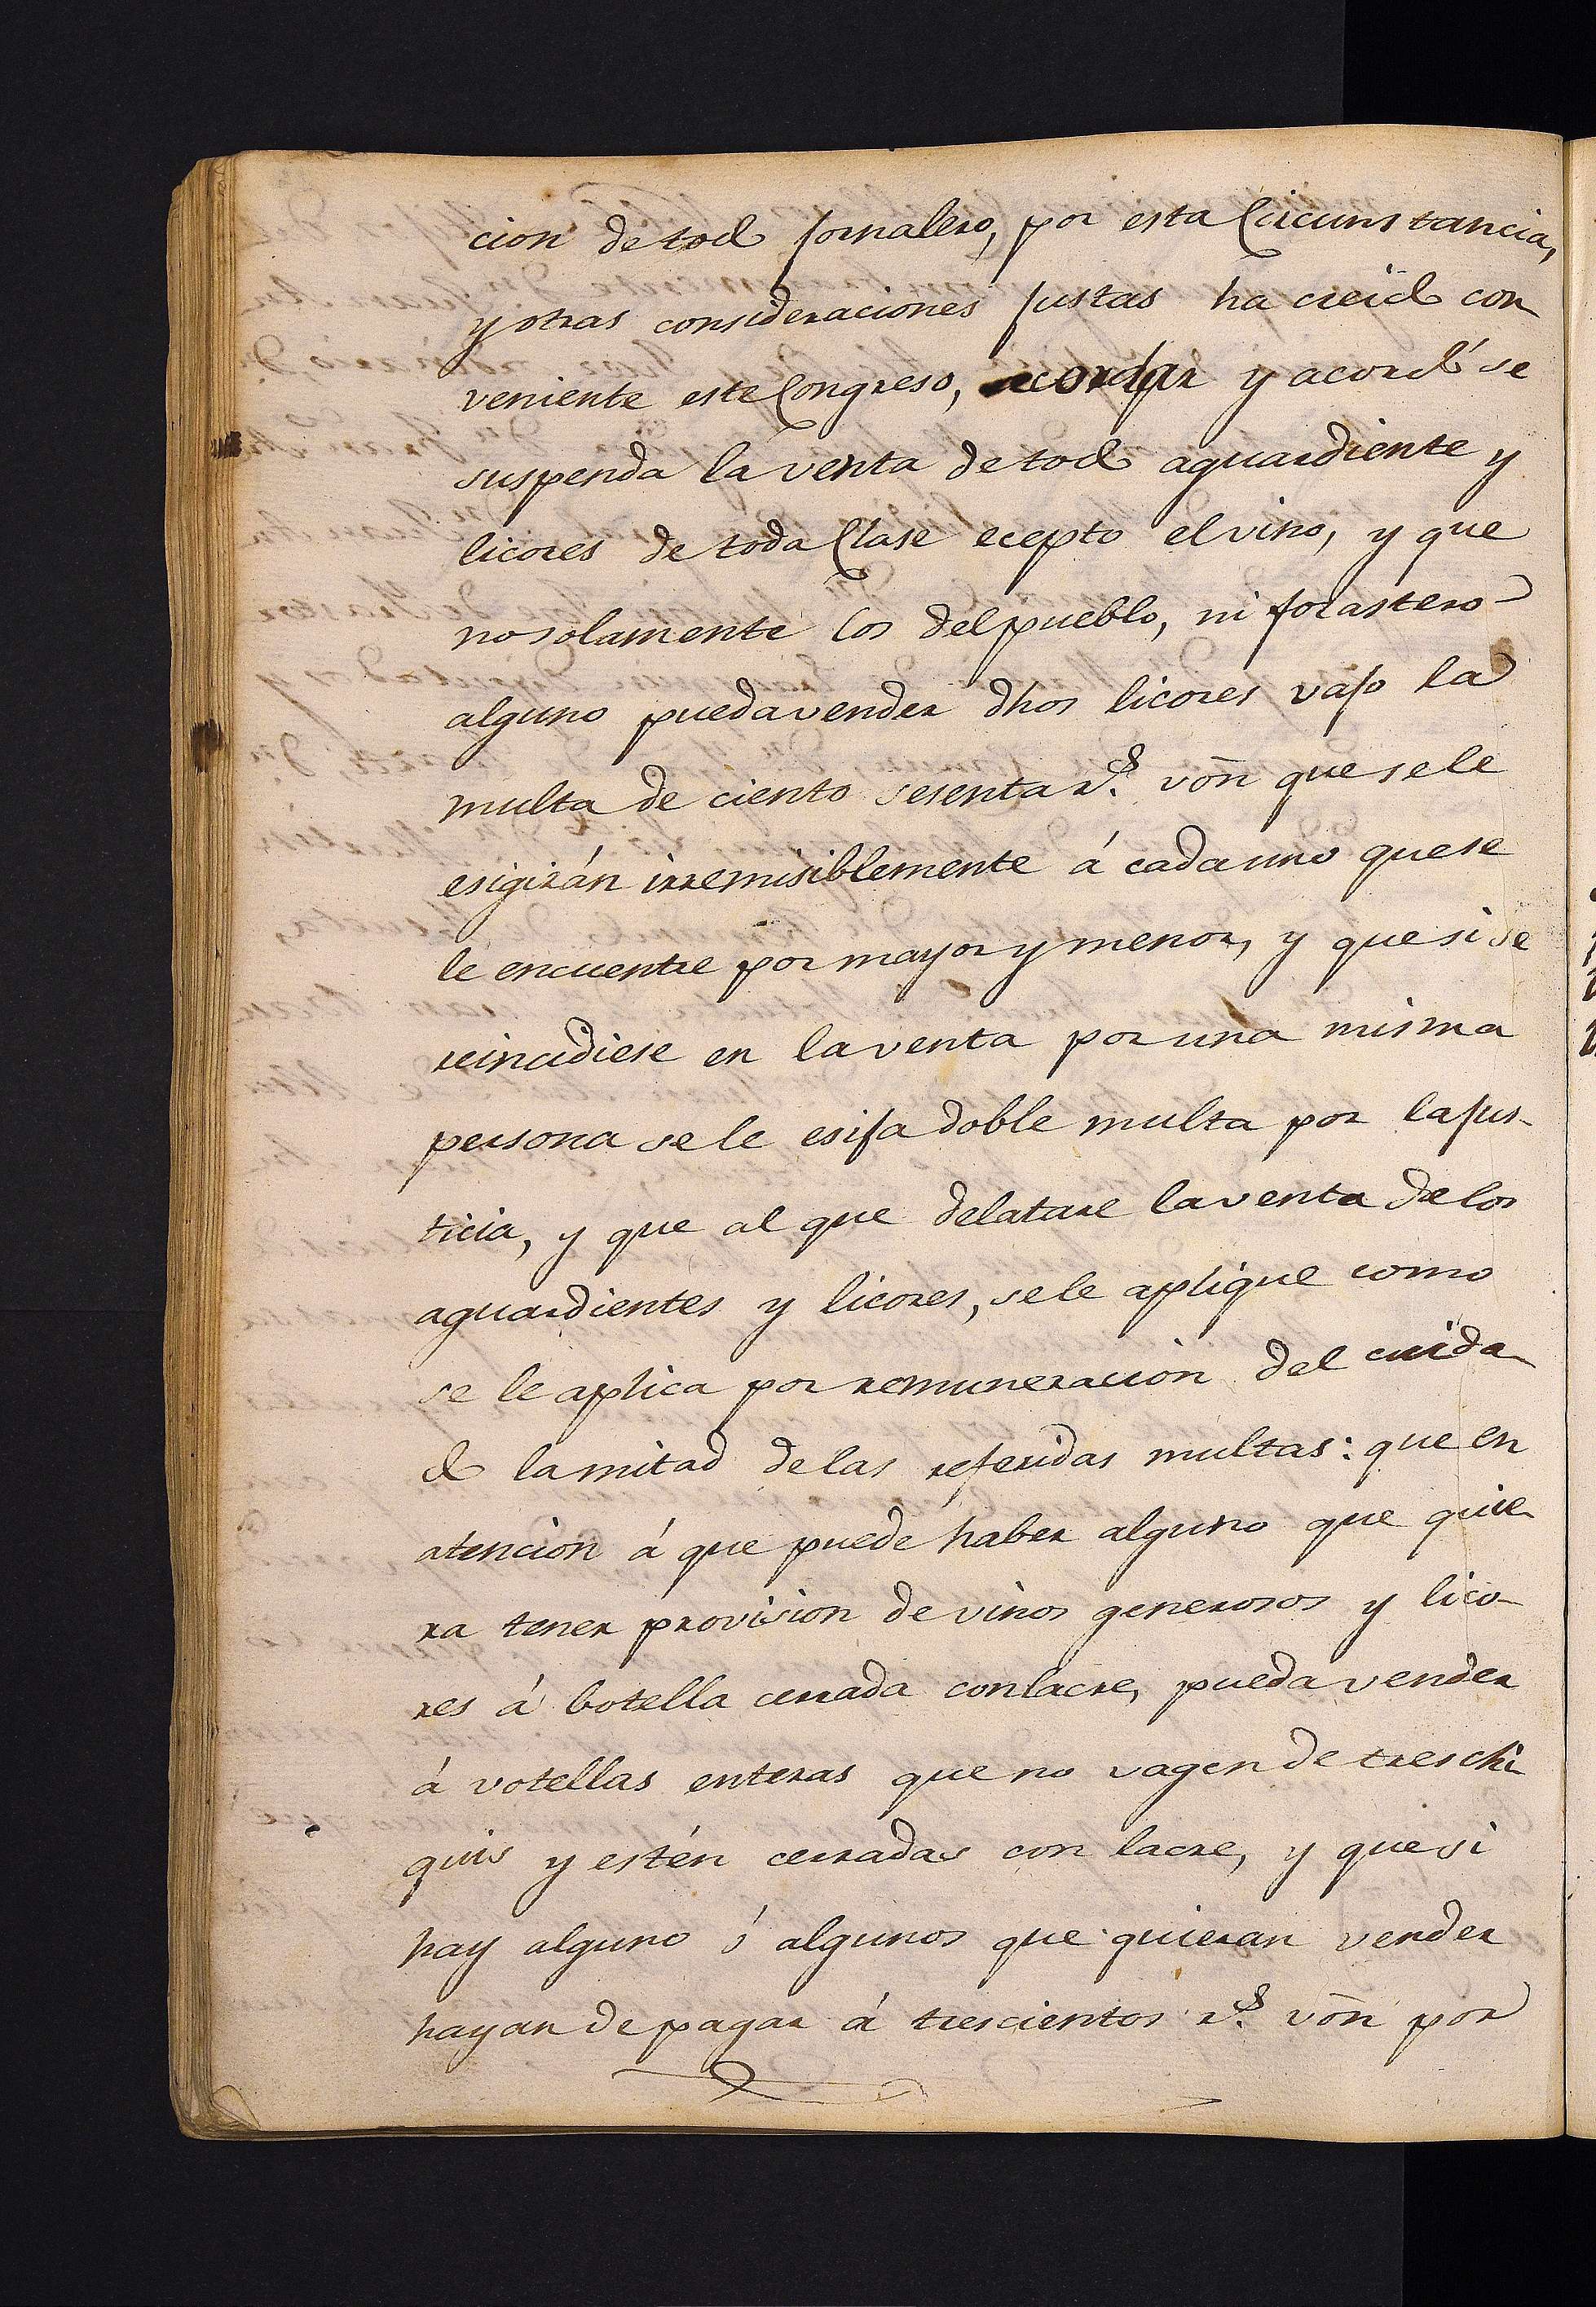 cion de todo Jornalero, por esta Circunstancia,
y otras consideraciones Justas ha creido con
veniente este Congreso, acordar y acordó se
suspenda la venta de todo aguardiente y
licores de toda Clase ecepto el vino, y que
no solamente los del pueblo, ni forastero
alguno pueda vender dhos licores vajo la
multa de ciento sesenta r.s von que se le
esigirán irremisiblemente á cada uno que se
le encuentre por mayor y menor, y que si se
reincidiese en la venta por una misma
persona se le esija doble multa por la jus-
ticia, y que al que delatare la venta de los
aguardientes y licores, se le aplique como
se le aplica por remuneracion del cuida
do la mitad de las referidas multas: que en
atencion á que puede haber alguno que quie
ra tener provision de vinos generosos y lico-
res á botella cerrada con lacre, pueda vender
á votellas enteras que no vagen de tres chi
quis y estén cerradas con lacre, y que si
hay alguno ó algunos que quieran vender
hayan de pagar á trescientos r.s von por